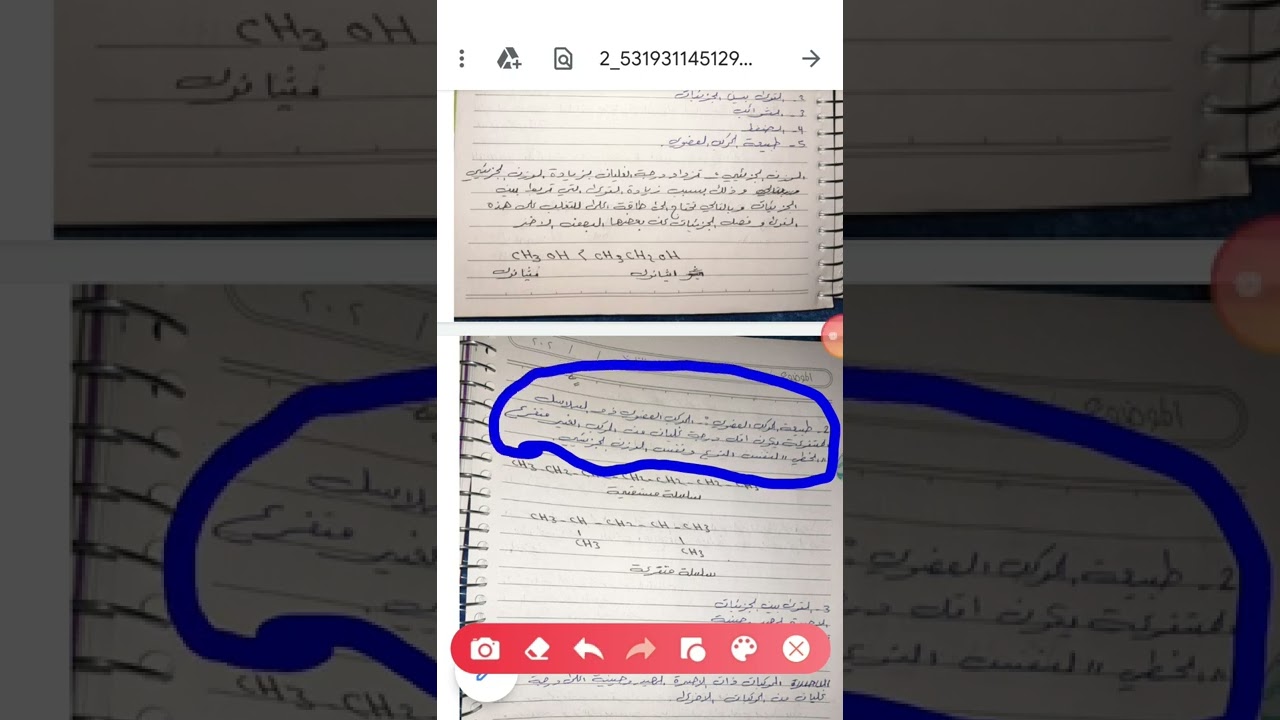 2_531931145129...
CH3 OH
ميثانول
2- القوى بين الجزيئات
3- الشوائب
4- الضغط
5- طبيعة المركب العضوي.
الوزن الجزيئي :- تزداد درجة الغليان بزيادة الوزن الجزيئي
وذلك بسبب زيادة القوى التي تربط بين
الجزيئات وبالتالي تحتاج الى طاقة اعلى للتغلب على هذه
القوى و فصل الجزيئات عن بعضها البعض الاخر
CH3 OH < CH3 CH2 OH
ميثانول ايثانول
الموضوع
2- طبيعة المركب العضوي :- المركب العضوي ذو السلاسل
المتفرعة يكون اقل درجة غليان من المركب الغير متفرع
"الخطي" لنفس النوع ونفس الوزن الجزيئي.
CH3-CH2-CH2-CH2-CH2-CH2-CH3
سلسلة مستقيمة
CH3-CH-CH2-CH-CH3
CH3 CH3
سلسلة متفرعة
3- القوى بين الجزيئات
المركبات ذات الاصرة الهيدروجينية اعلى درجة
غليان من المركبات الاخرى